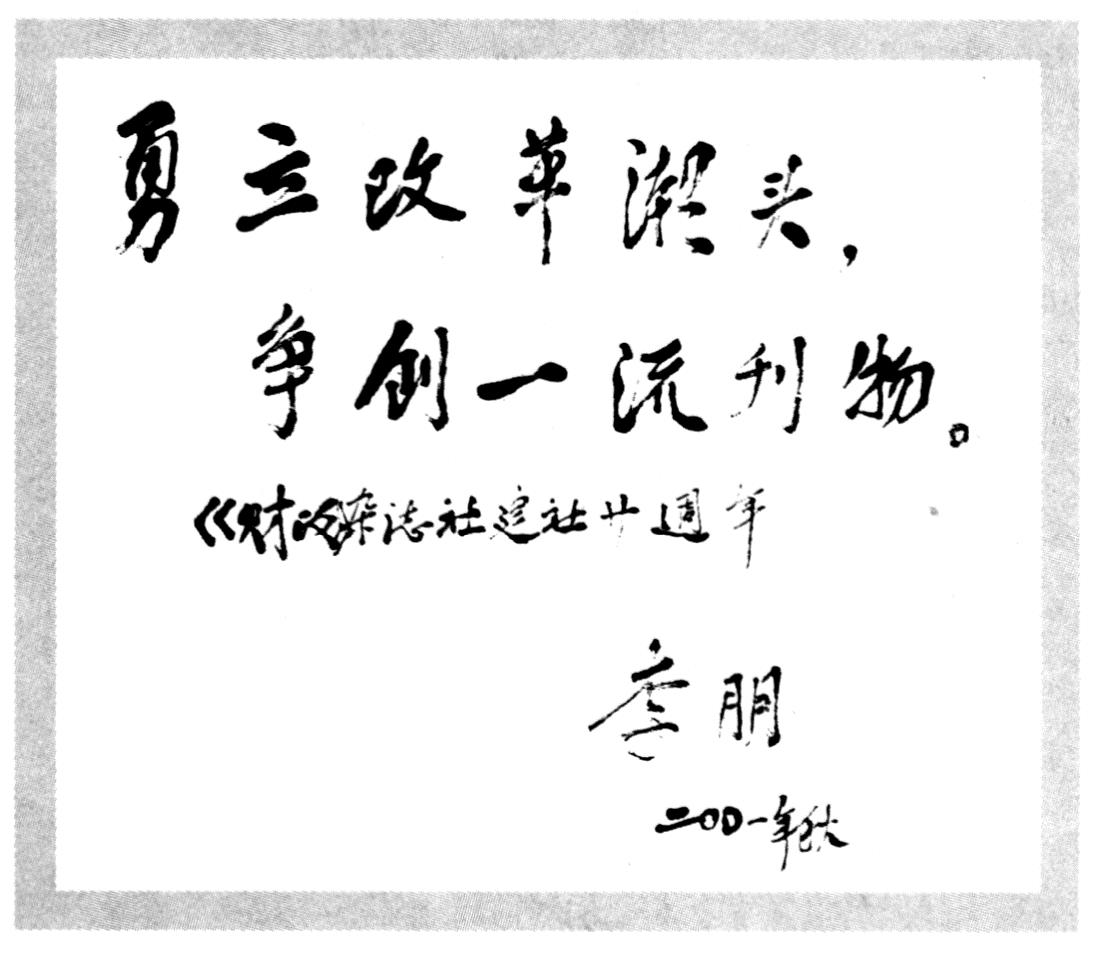 勇立改革潮头，
争创一流刊物。
《财政杂誌社建社廿週年
李朋
二〇〇一年秋